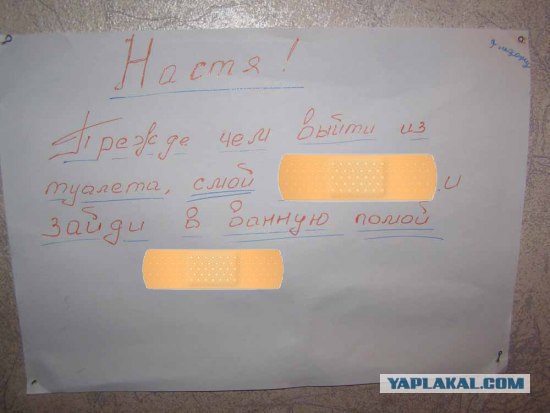 Настя!
Прежде чем выйти из
туалета, смой и
зайди в ванную помой
YAPLAKAL.COM